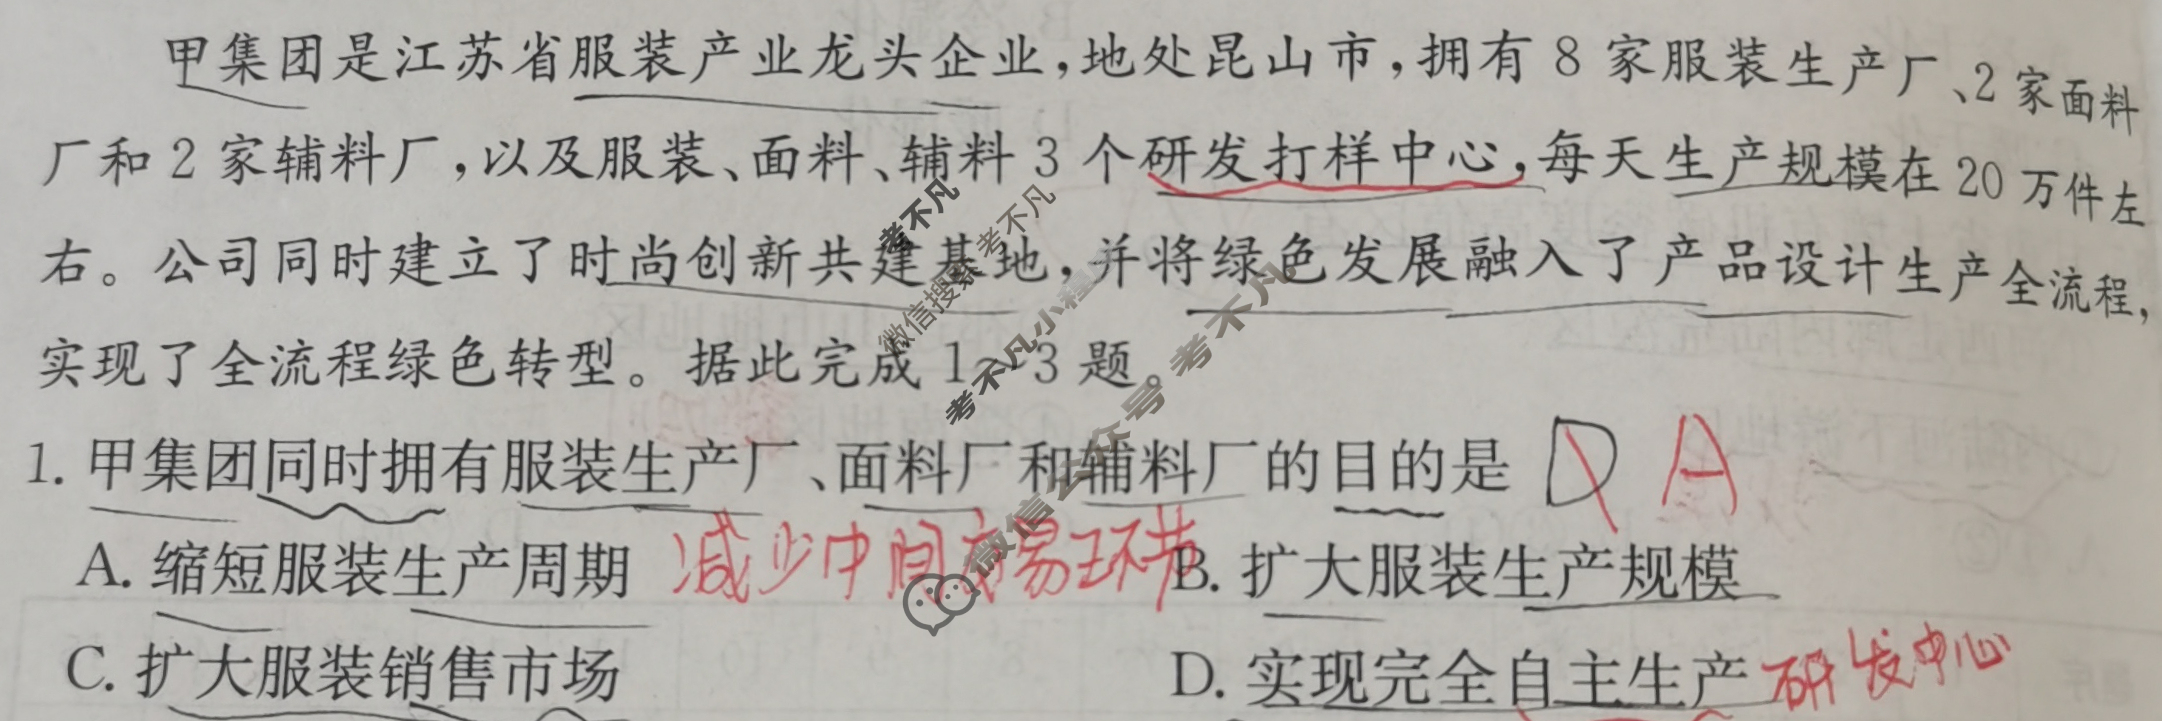 甲集团是江苏省服装产业龙头企业,地处昆山市,拥有 8 家服装生产厂、2 家面料
厂和 2 家辅料厂,以及服装、面料、辅料 3 个研发打样中心,每天生产规模在 20 万件左
右。公司同时建立了时尚创新共建基地,并将绿色发展融入了产品设计生产全流程,
实现了全流程绿色转型。据此完成 1~3 题。
1. 甲集团同时拥有服装生产厂、面料厂和辅料厂的目的是 D A
A. 缩短服装生产周期 减少中间交易环节 B. 扩大服装生产规模
C. 扩大服装销售市场 D. 实现完全自主生产 研发中心
考不凡
微信搜索 考不凡
考不凡小程序
微信公众号 考不凡